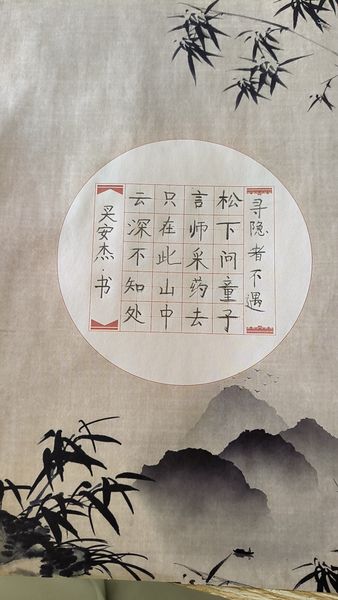 寻隐者不遇
松下问童子
言师采药去
只在此山中
云深不知处
吴安杰·书